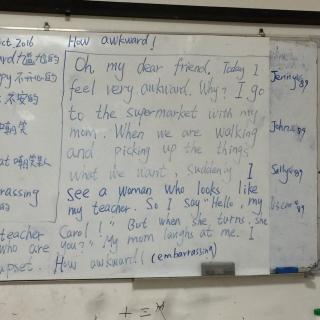 Oct, 2016 How awkward!
Oh, my dear friend. Today I
feel very awkward. Why? I go
to the supermarket with my
mom. When we are walking
and picking up the things
what we want, suddenly I
see a woman who looks like
my teacher. So I say "Hello, my
teacher Carol!" But when she turns, she
who are you?" My mom laughs at me. I
upset. How awkward! (embarrassing)
尴尬的
不开心的
不安的
嘲笑
at 嘲笑某人
rassing
的
Jenny 89
John 89
Sally 89
89
十三